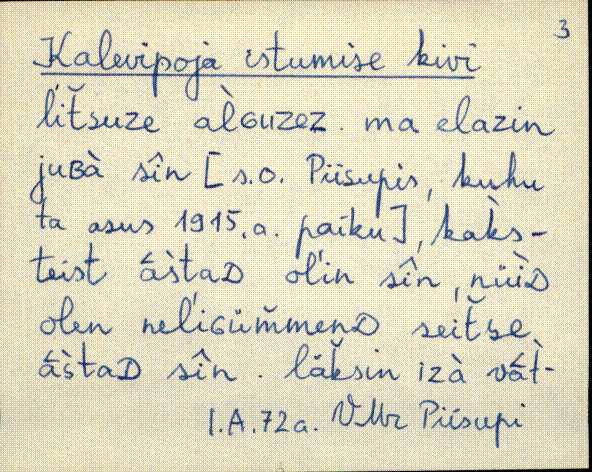 3
Kalevipoja istumise kivi
ĺit̆suze aĺ̀ɢuzez. ma elazin
juʙà sîn [s.o. Piisupis, kuhu
ta asus 1915.a. paiku], kak̀s-
teist āš̀taᴅ oĺin sîn, nüìᴅ
olen neĺiɢüm̆menᴅ seit̆se
āš̀taᴅ sîn. läk̆sin izà vát̀-
I.A.72a. VMr Piisupi